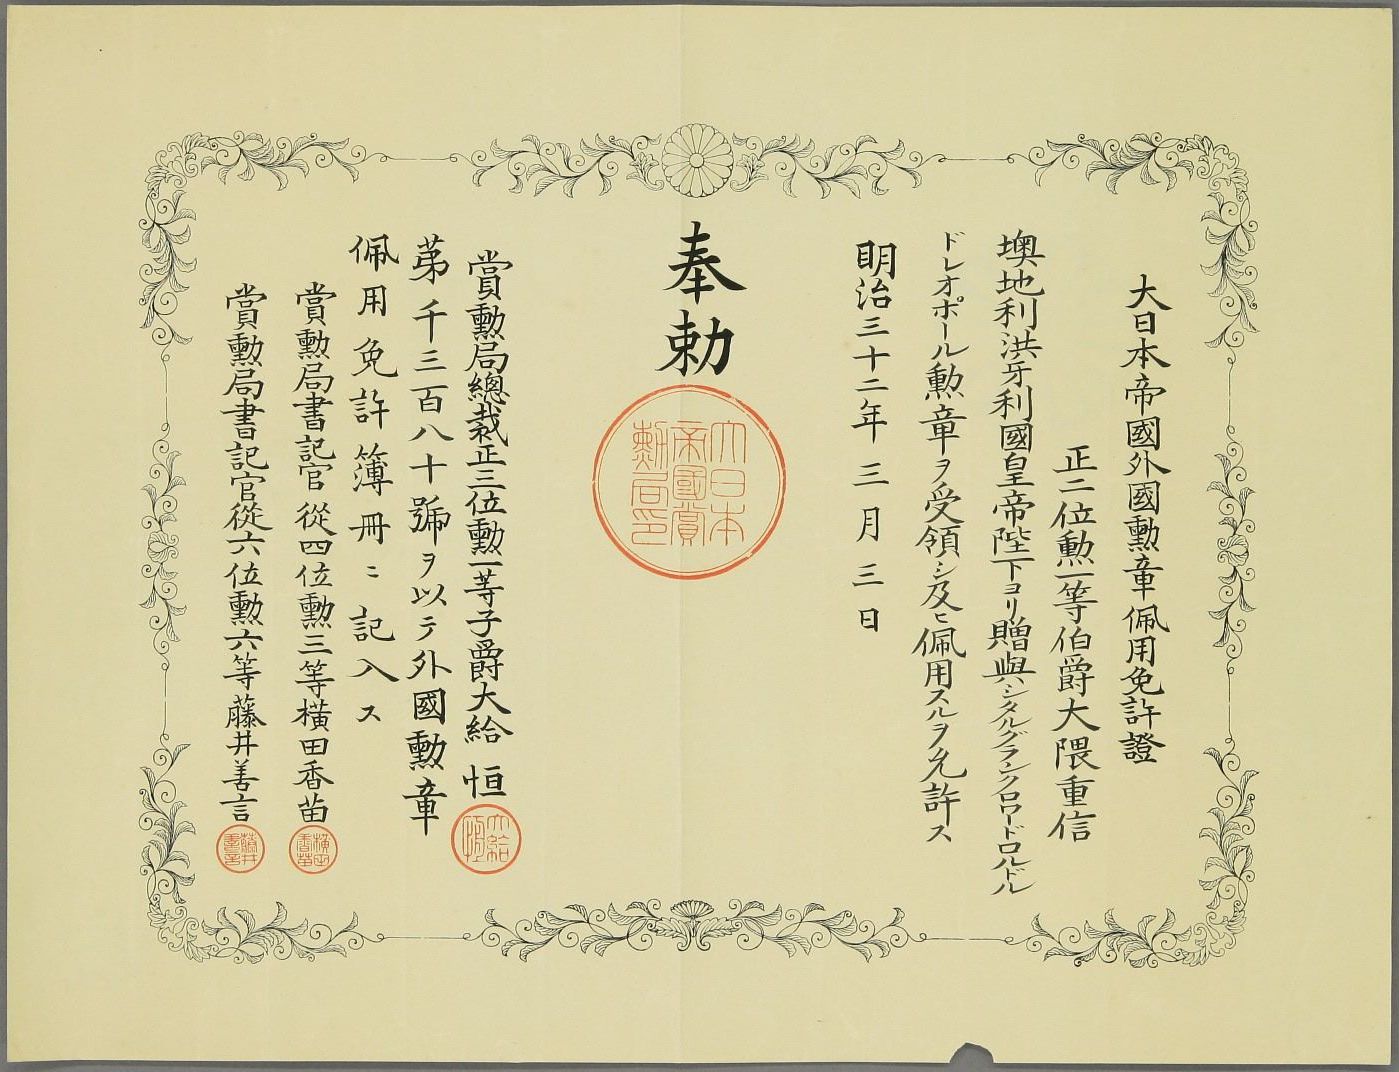 大日本帝國外國勲章佩用免許證
正二位勲一等伯爵大隈重信
墺地利洪牙利國皇帝陛下ヨリ贈與シタルグランクロワードロルドル
ドレオポール勲章ヲ受領シ及ヒ佩用スルヲ允許ス
明治三十二年三月三日
奉勅
大日本
帝國賞
勲局印
賞勲局總裁正三位勲一等子爵大給恒
大給
恒印
苐千三百八十號ヲ以テ外國勲章
佩用免許簿冊ニ記入ス
賞勲局書記官從四位勲三等横田香苗
横田
香苗
賞勲局書記官從六位勲六等藤井善言
藤井
善言